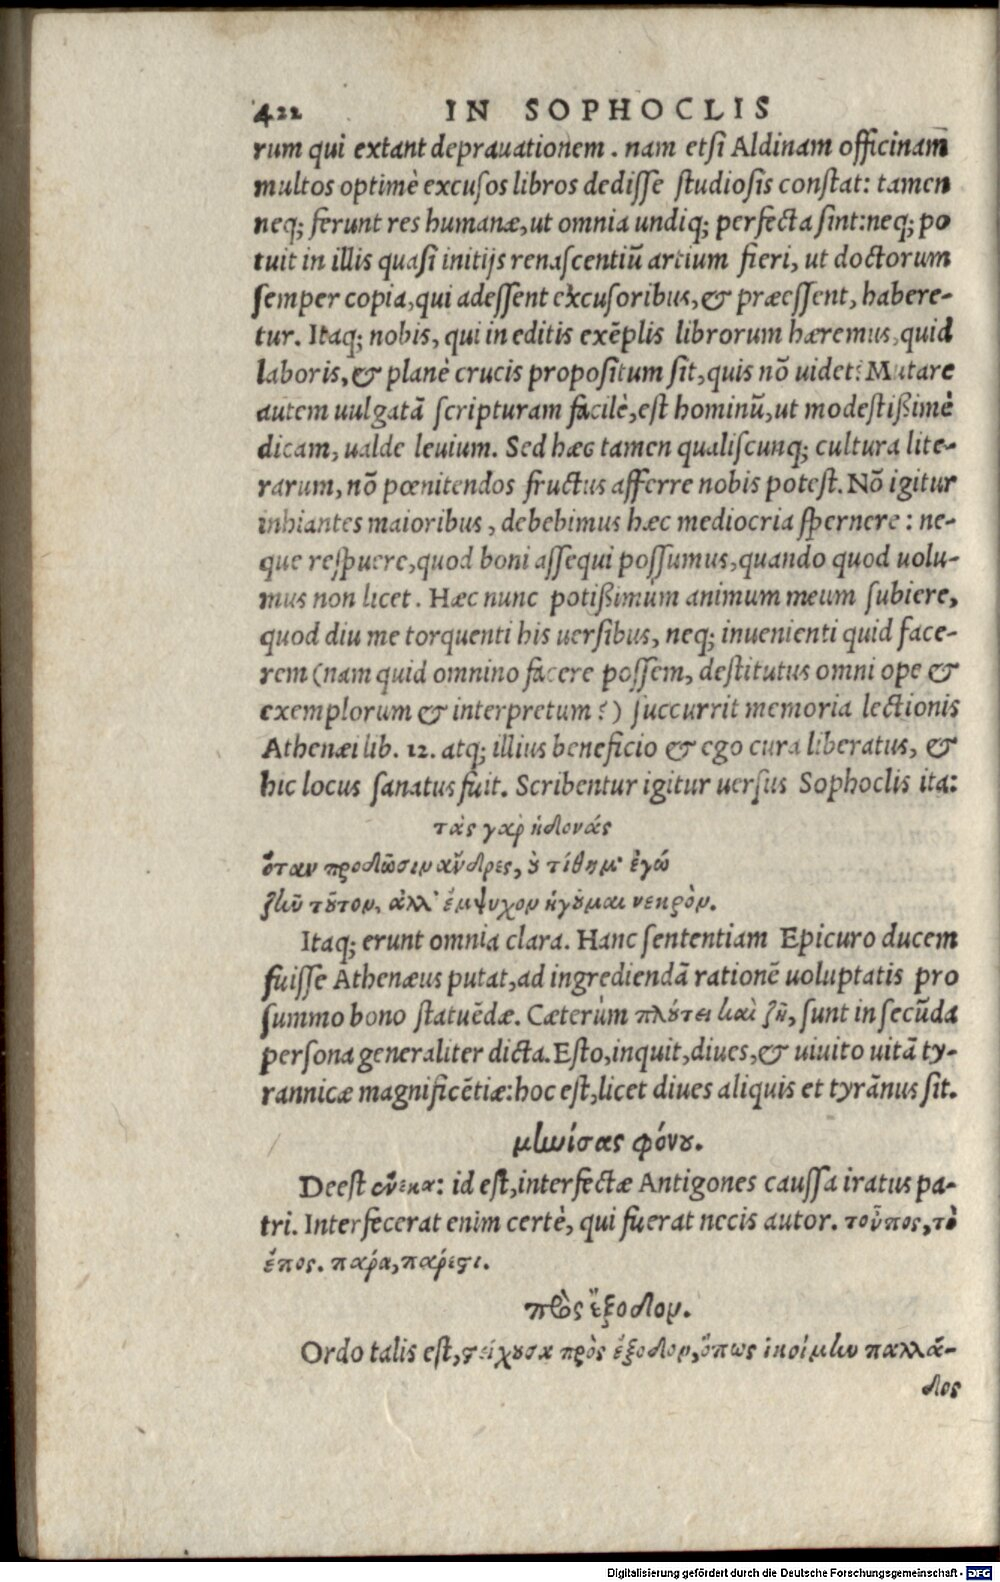 422 IN SOPHOCLIS
rum qui extant deprauationem. nam etsi Aldinam officinam
multos optimè excusos libros dedisse studiosis constat: tamen
neq; ferunt res humanæ, ut omnia undiq; perfecta sint: neq; po
tuit in illis quasi initijs renascentiũ artium fieri, ut doctorum
semper copia, qui adessent excusoribus, & præessent, habere-
tur. Itaq; nobis, qui in editis exẽplis librorum hæremus, quid
laboris, & planè crucis propositum sit, quis nõ uidet? Mutare
autem uulgatã scripturam facilè, est hominũ, ut modestißimè
dicam, ualde leuium. Sed hæc tamen qualiscunq; cultura lite-
rarum, nõ pœnitendos fructus afferre nobis potest. Nõ igitur
inhiantes maioribus, debebimus hæc mediocria spernere: ne-
que respuere, quod boni assequi possumus, quando quod uolu-
mus non licet. Hæc nunc potißimùm animum meum subiere,
quod diu me torquenti his uersibus, neq; inuenienti quid face-
rem (nam quid omnino facere possem, destitutus omni ope &
exemplorum & interpretum?) succurrit memoria lectionis
Athenæi lib. 12. atq; illius beneficio & ego cura liberatus, &
hic locus sanatus fuit. Scribentur igitur uersus Sophoclis ita:
τὰς γὰρ ἡδονάς
ὅταν προδῶσιν ἄνδρες, ȣ̓ τίθημ' ἐγώ
ζῆν τȣ͂τον, ἀλλ' ἔμψυχον ἡγȣ͂μαι νεκρόν.
Itaq; erunt omnia clara. Hanc sententiam Epicuro ducem
fuisse Athenæus putat, ad ingrediendã rationẽ uoluptatis pro
summo bono statuẽdæ. Cæterùm πλȣ́τει καὶ ζῆ, sunt in secũda
persona generaliter dicta. Esto, inquit, diues, & uiuito uitã ty-
rannicæ magnificẽtiæ: hoc est, licet diues aliquis et tyrãnus sit.
μηνίσας φόνȣ.
Deest οὕνεκα: id est, interfectæ Antigones caussa iratus pa-
tri. Interfecerat enim certè, qui fuerat necis autor. τοὖπος, τὸ
ἔπος. πάρα, πάρεστι.
πρὸς ἔξοδον.
Ordo talis est, στείχȣσα πρὸς ἔξοδον, ὅπως ἱκοίμην παλλά-
δος
Digitalisierung gefördert durch die Deutsche Forschungsgemeinschaft - DFG